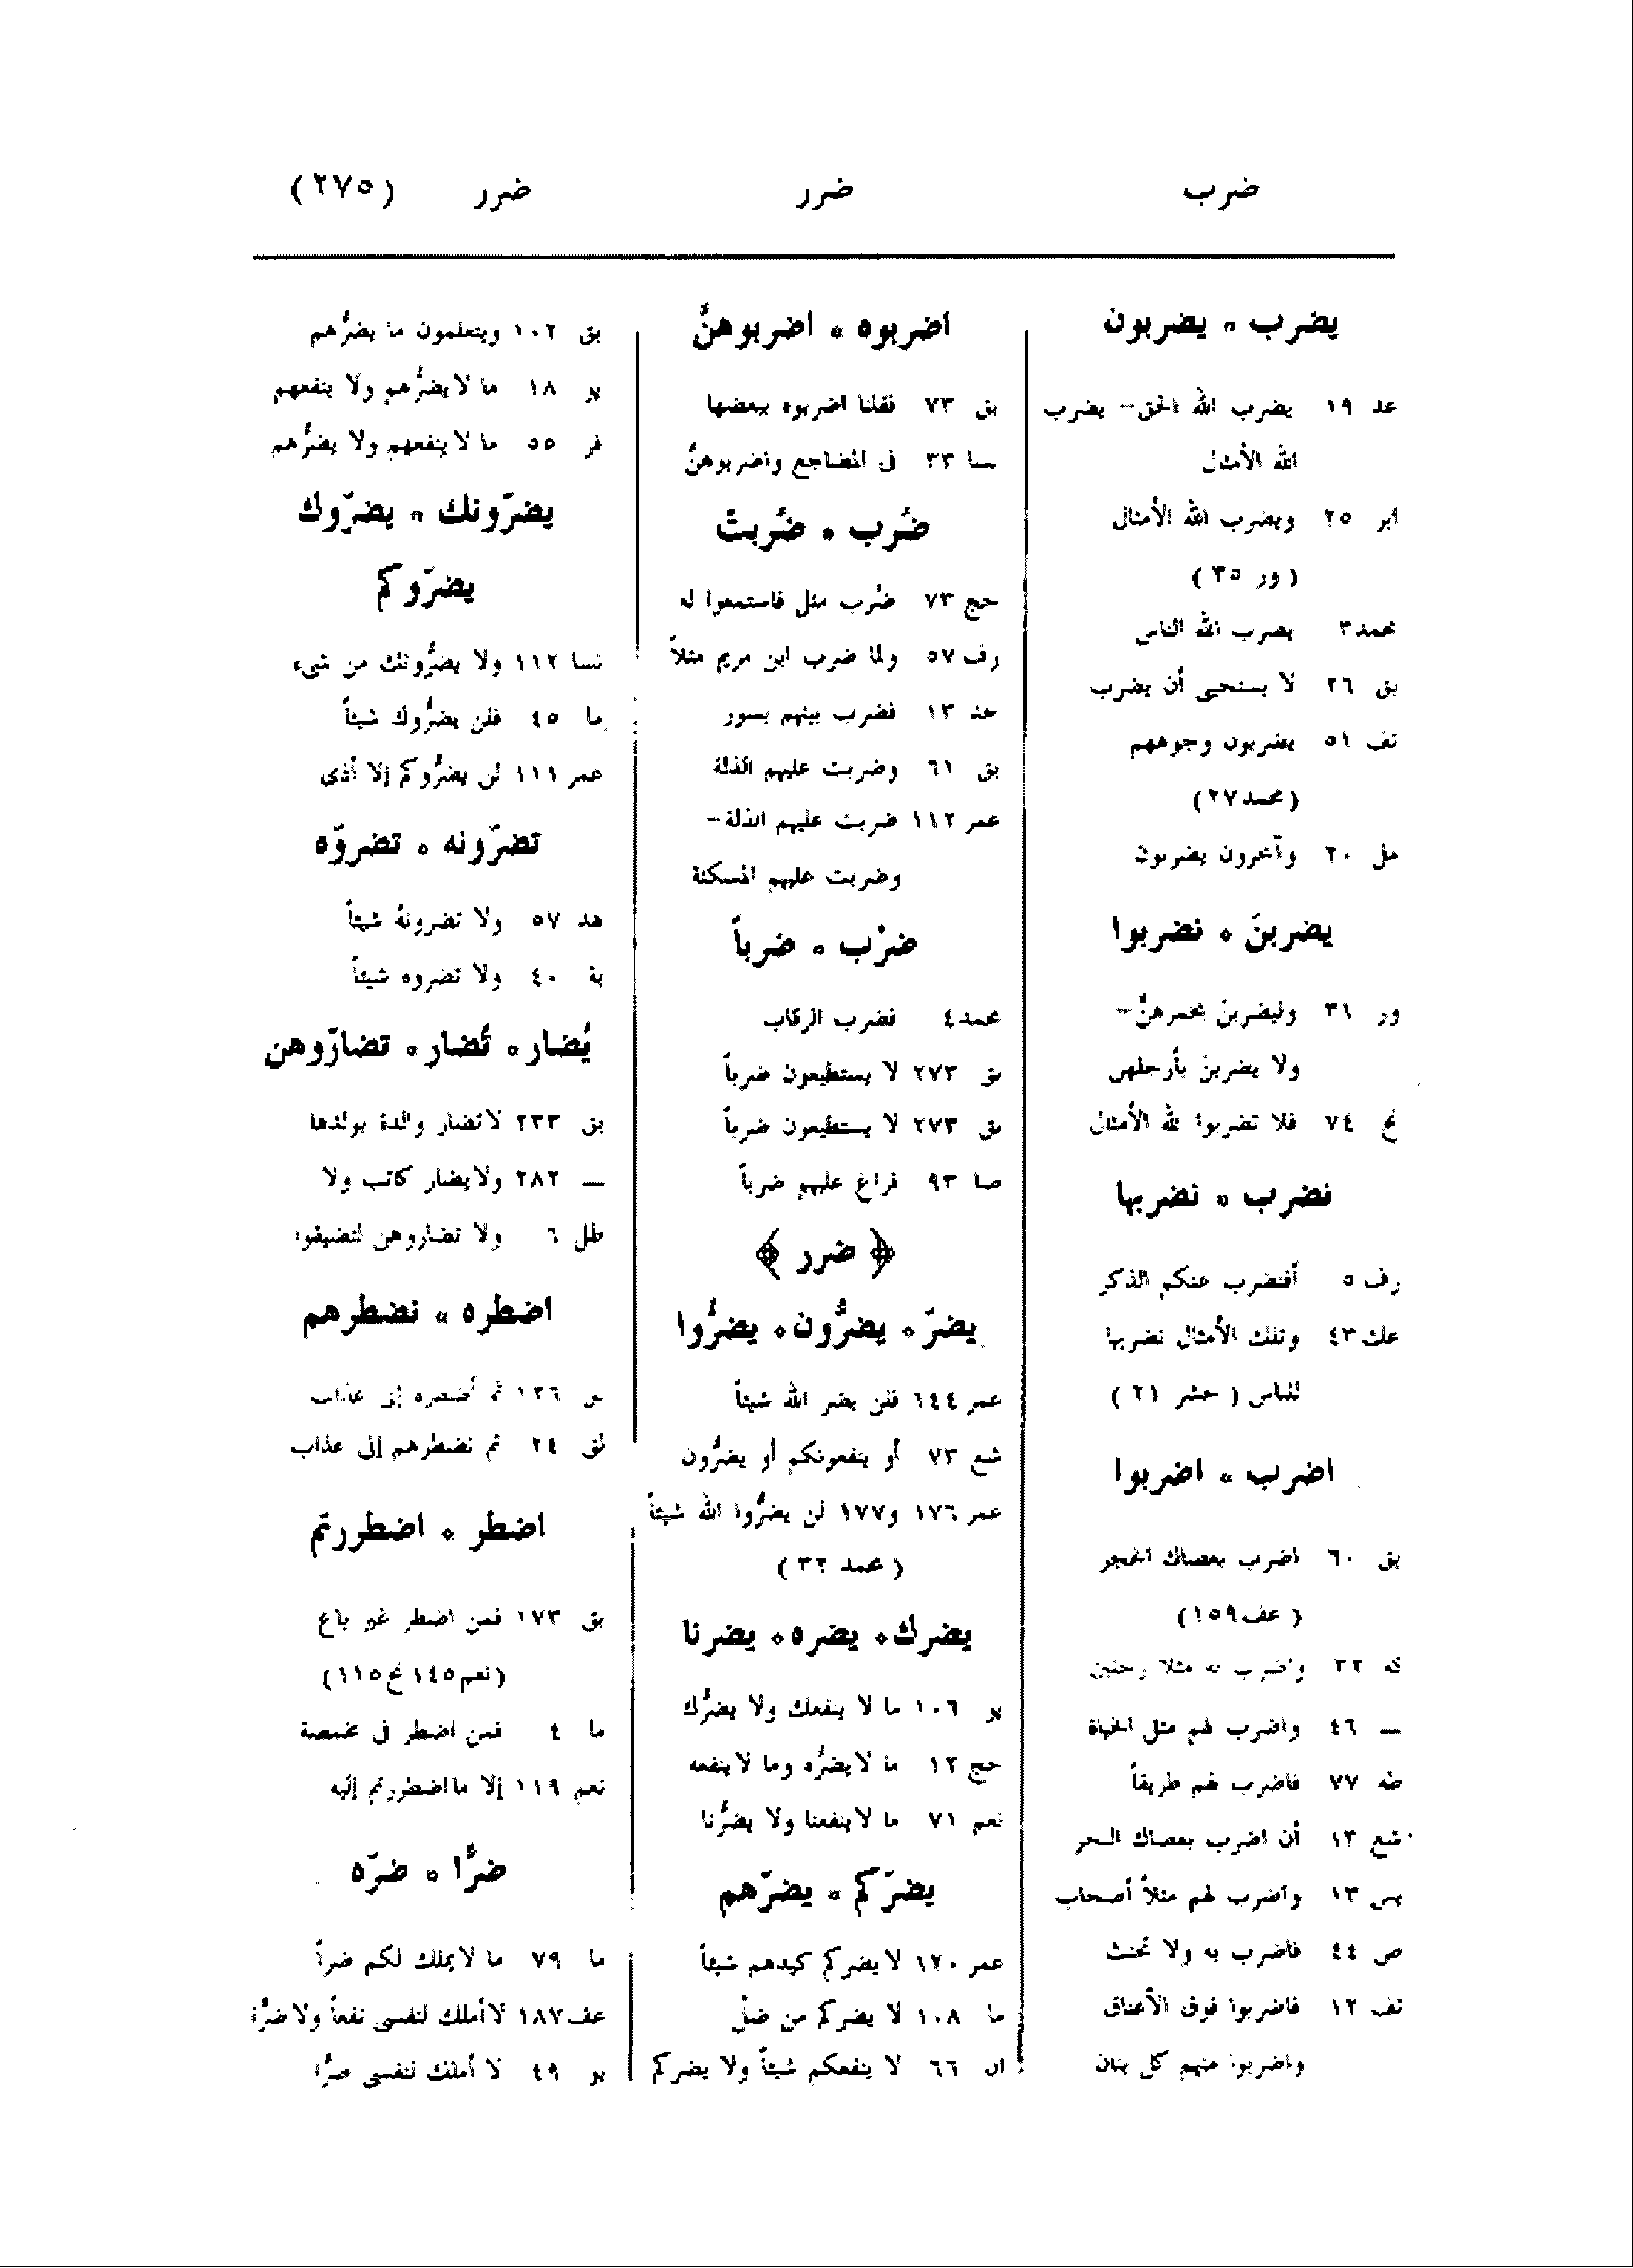 ضرب ضرر ضرر (٢٧٥)
يضرب * يضربون
عد ١٩ يضرب الله الحق - يضرب
الله الأمثال
ابر ٢٥ ويضرب الله الأمثال
(ور ٣٥)
محمد ٣ يضرب الله الناس
بق ٢٦ لا يستحيى أن يضرب
نف ٥١ يضربون وجوههم
(محمد ٢٧)
مل ٢٠ وآخرون يضربون
يضربنَ * تضربوا
ور ٣١ وليضربن بخمرهنَّ -
ولا يضربن بأرجلهن
نح ٧٤ فلا تضربوا لله الأمثال
نضرب * نضربها
رف ٥ أفنضرب عنكم الذكر
عك ٤٣ وتلك الأمثال نضربها
للناس (حشر ٢١)
اضرب * اضربوا
بق ٦٠ اضرب بعصاك الحجر
(عف ١٥٩)
كه ٣٢ واضرب له مثلا رجلين
— ٤٦ واضرب لهم مثل الحياة
طه ٧٧ فاضرب لهم طريقاً
شع ١٣ أن اضرب بعصاك البحر
يس ١٣ واضرب لهم مثلاً أصحاب
ص ٤٤ فاضرب به ولا تحنث
نف ١٢ فاضربوا فوق الأعناق
واضربوا منهم كل بنان
اضربوه * اضربوهنَّ
بق ٧٣ فقلنا اضربوه ببعضها
نسا ٣٣ فى المضاجع واضربوهنَّ
ضُرب * ضُربتْ
حج ٧٣ ضُرب مثل فاستمعوا له
رف ٥٧ ولما ضرب ابن مريم مثلاً
حد ١٣ فضرب بينهم بسور
بق ٦١ وضربت عليهم الذلة
عمر ١١٢ ضربت عليهم الذلة -
وضربت عليهم المسكنة
ضرْب * ضرباً
محمد ٤ فضرب الرقاب
بق ٢٧٣ لا يستطيعون ضرباً
بق ٢٧٣ لا يستطيعون ضرباً
صا ٩٣ فراغ عليهم ضرباً
﴿ ضرر ﴾
يضرّ * يضرُّون * يضرُّوا
عمر ١٤٤ فلن يضر الله شيئاً
شع ٧٣ أو ينفعونكم أو يضرُّون
عمر ١٧٦ و١٧٧ لن يضرُّوا الله شيئاً
(محمد ٣٢)
يضرك * يضره * يضرنا
يو ١٠٦ ما لا ينفعك ولا يضرُّك
حج ١٢ ما لا يضرُّه وما لا ينفعه
نعم ٧١ ما لا ينفعنا ولا يضرُّنا
يضرّكم * يضرّهم
عمر ١٢٠ لا يضركم كيدهم شيئاً
ما ١٠٨ لا يضركم من ضلَّ
ان ٦٦ لا ينفعكم شيئاً ولا يضركم
بق ١٠٢ ويتعلمون ما يضرُّهم
يو ١٨ ما لا يضرُّهم ولا ينفعهم
فر ٥٥ ما لا ينفعهم ولا يضرُّهم
يضرّونك * يضرّوك
يضرّوكم
نسا ١١٢ ولا يضرُّونك من شىء
ما ٤٥ فلن يضرُّوك شيئاً
عمر ١١١ لن يضرُّوكم إلا أذى
تضرّونه * تضروّه
هد ٥٧ ولا تضرونهُ شيئاً
بة ٤٠ ولا تضروه شيئاً
يُضار * تُضار * تضارّوهن
بق ٢٣٣ لا تضار والدة بولدها
— ٢٨٢ ولا يضار كاتب ولا
طل ٦ ولا تضاروهن لتضيقوا
اضطره * نضطرهم
بق ١٢٦ ثم أضطره إلى عذاب
لق ٢٤ ثم نضطرهم إلى عذاب
اضطر * اضطررتم
بق ١٧٣ فمن اضطر غير باغ
(نعم ١٤٥ نح ١١٥)
ما ٤ فمن اضطر فى مخمصة
نعم ١١٩ إلا ما اضطررتم إليه
ضرًّا * ضرّه
ما ٧٩ ما لا يملك لكم ضراً
عف ١٨٧ لا أملك لنفسى نفعاً ولا ضرًّا
يو ٤٩ لا أملك لنفسى ضرًّا